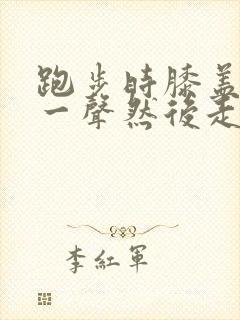 跑步時膝蓋
一聲然後走
李紅軍